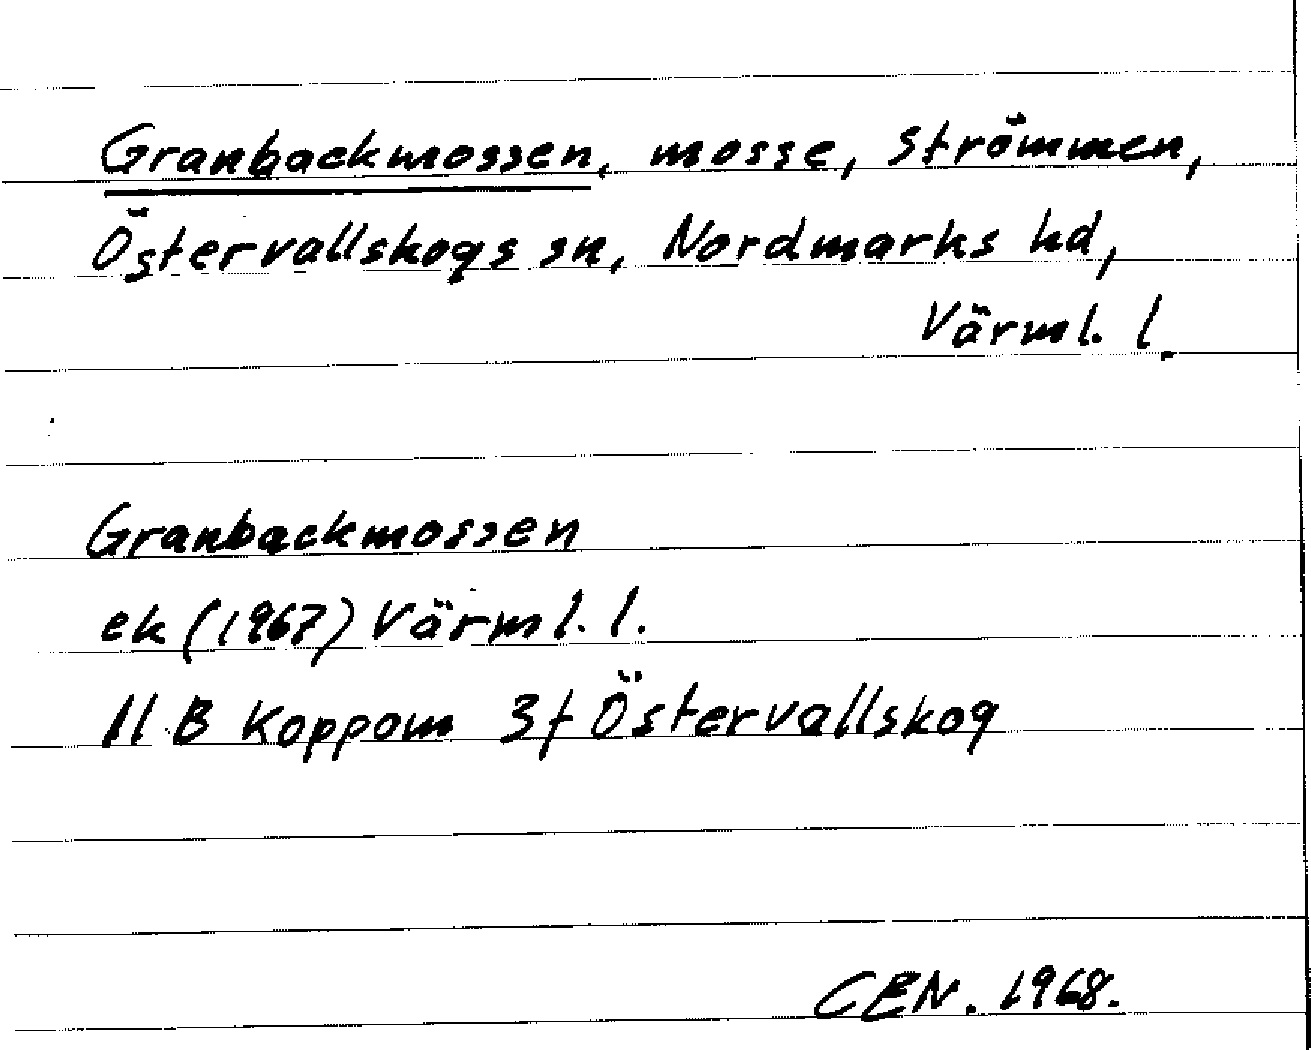 Granbackmossen, mosse, Strömmen,
Östervallskogs sn, Nordmarks hd,
Värml. l.
Granbackmossen
ek (1967) Värml. l.
11 B Koppom 3f Östervallskog
CEN. 1968.